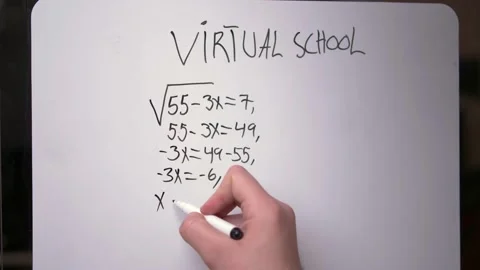 VIRTUAL SCHOOL
√55-3x=7,
55-3x=49,
-3x=49-55,
-3x=-6,
x